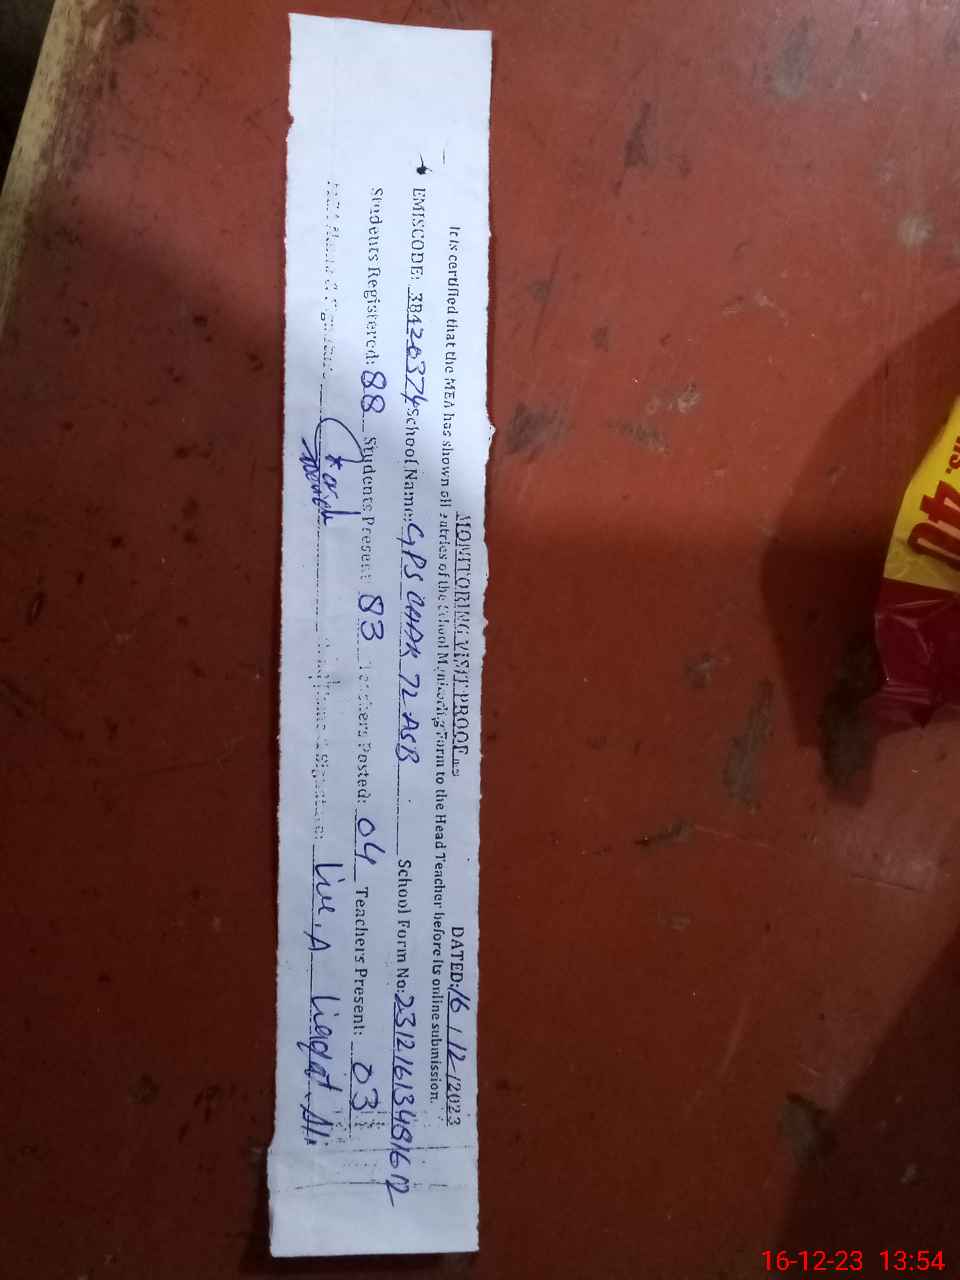 MONITORING VISIT PROOF
DATED: 16/12/2023
It is certified that the MEA has shown all entries of the School Monitoring Form to the Head Teacher before its online submission.
EMISCODE: 38420374 School Name: GPS CHAK 72 ASB School Form No: 231216134816
Students Registered: 88 Students Present: 83 Teachers Posted: 04 Teachers Present: 03
MEA Name & Signature Name & Signature: Liaqat Ali
Rs. 40
16-12-23 13:54